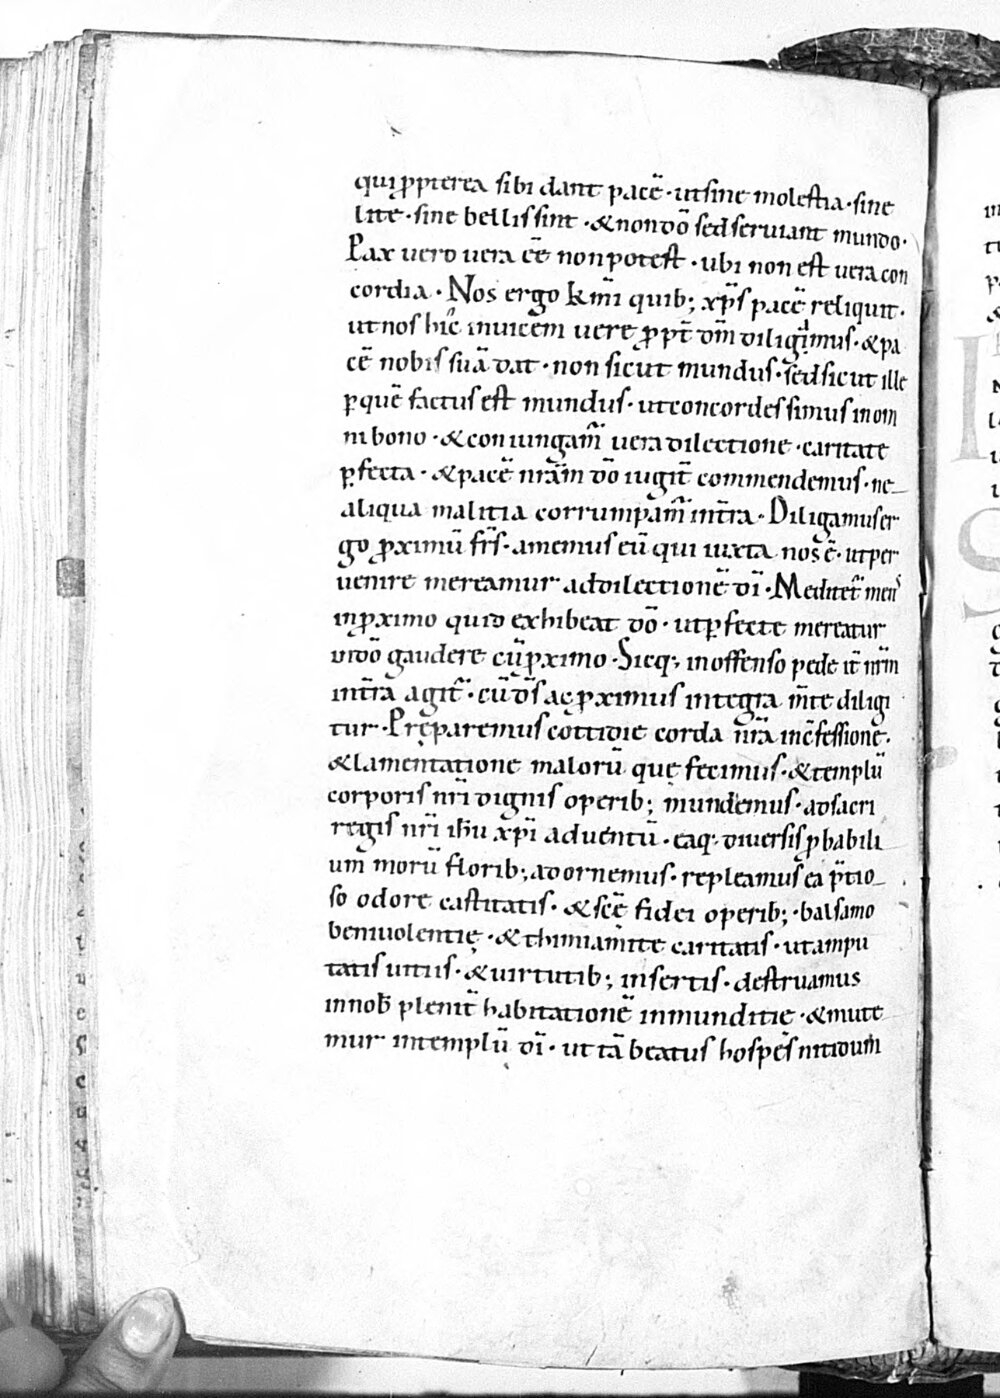 qui ꝓpterea sibi dant pacē · ut sine molestia · sine
lite · sine bellis sint · & non dō sed seruiant mundo ·
Pax uero uera eē non potest · ubi non est uera con
cordia · Nos ergo km̄i quib; xp̄s pacē reliquit ·
ut nos hic inuicem uere ꝓpt̄ dm̄ diligamus · & pa
cē nobis suā dat · non sicut mundus · sed sicut ille
ꝑ quē factus est mundus · ut concordes simus in om
ni bono · & coniungam̄ uera dilectione · caritate
ꝑfecta · & pacē nrām dō iugit̄ commendemus · ne
aliqua malitia corrumpam̄ intrā · Diligamus er
go ꝓximū frs̄ · amemus eū qui iuxta nos ē · ut per
uenire mereamur ad dilectionē dī · Meditet̄ mens
in ꝓximo quid exhibeat dō · ut ꝑfecte mereatur
in dō gaudere cū ꝓximo · Sicq; inoffenso pede it̄ nrm̄
intrā agit̄ · cū ds̄ ac ꝓximus integra m̄te diligi
tur · Pręparemus cottidie corda nrā in c̄fessione ·
& lamentatione malorū quę fecimus · & templū
corporis nrī dignis operib; mundemus · ad sacri
regis nrī ihū xpī aduentū · eaq; diuersis ꝓbabili
um morū florib; adornemus · repleamus ea p̄tio
so odore castitatis · & scē fidei operib; · balsamo
beniuolentię · & thimiam̄te caritatis · ut ampu
tatis uitiis · & uirtutib; insertis · destruamus
in nob̄ plenit̄ habitationē inmunditie · & mute
mur in templū dī · ut tā beatus hospes nitidum